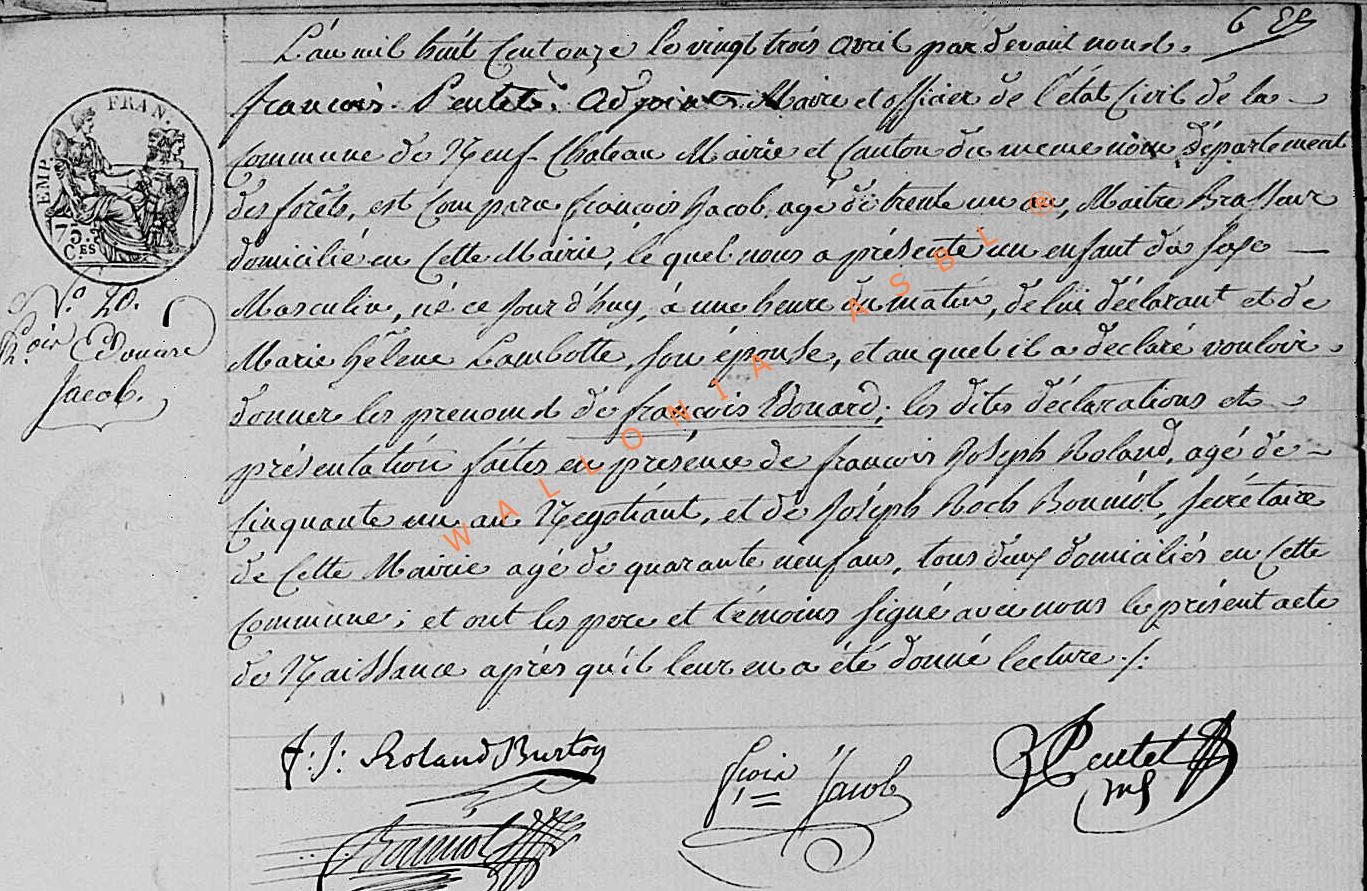 6 
L'an mil huit Cent onze le vingt trois avril par devant nous.
françois Peutet. Adjoint Maire et officier de l'état Civil de la
Commune de Neuf-Chateau Mairie et Canton du meme nom, département
des forêts, est Comparu françois Jacob, agé de trente un an, Maitre Brasseur
domicilié en Cette Mairie, le quel nous a présenté un enfant du sexe
Masculin, né ce jour d'huy, à une heure du matin, de lui déclarant et de
Marie hélene Lambotte, son épouse, et au quel il a déclaré vouloir
donner les prenoms de françois Edouard; les dites déclarations et
présentation faites en présence de françois Joseph Roland, agé de
Cinquante un an Negotiant, et de Joseph Roch Bonniot, secrétaire
de Cette Mairie agé de quarante neuf ans, tous deux domiciliés en Cette
Commune; et ont les pere et témoins signé avec nous le présent acte
de Naissance après qu'il leur en a été donné lecture ./.
EMP. FRAN.
75.
CES
N.º 20.
Edouard
Jacob.
F: J: Roland Burton
fçois Jacob
Peutet
Bonniot
WALLONIA ASBL ®